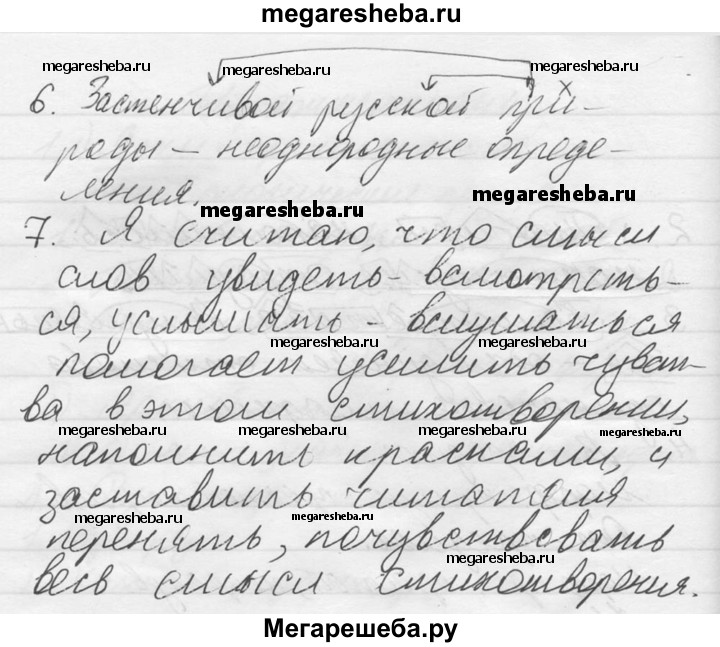 megaresheba.ru
megaresheba.ru megaresheba.ru megaresheba.ru
6. Застенчивой русской при-
роды – неоднородные опреде-
ления.
megaresheba.ru
megaresheba.ru
7. Я считаю, что смысл
слов увидеть - всмотреть-
ся, услышать - вслушаться
megaresheba.ru megaresheba.ru
помогает усилить чувст-
ва в этом стихотворении,
megaresheba.ru megaresheba.ru
наполнить красками, и
заставить читателя
megaresheba.ru megaresheba.ru
перенять, почувствовать
megaresheba.ru
весь смысл стихотворения.
Мегарешеба.ру